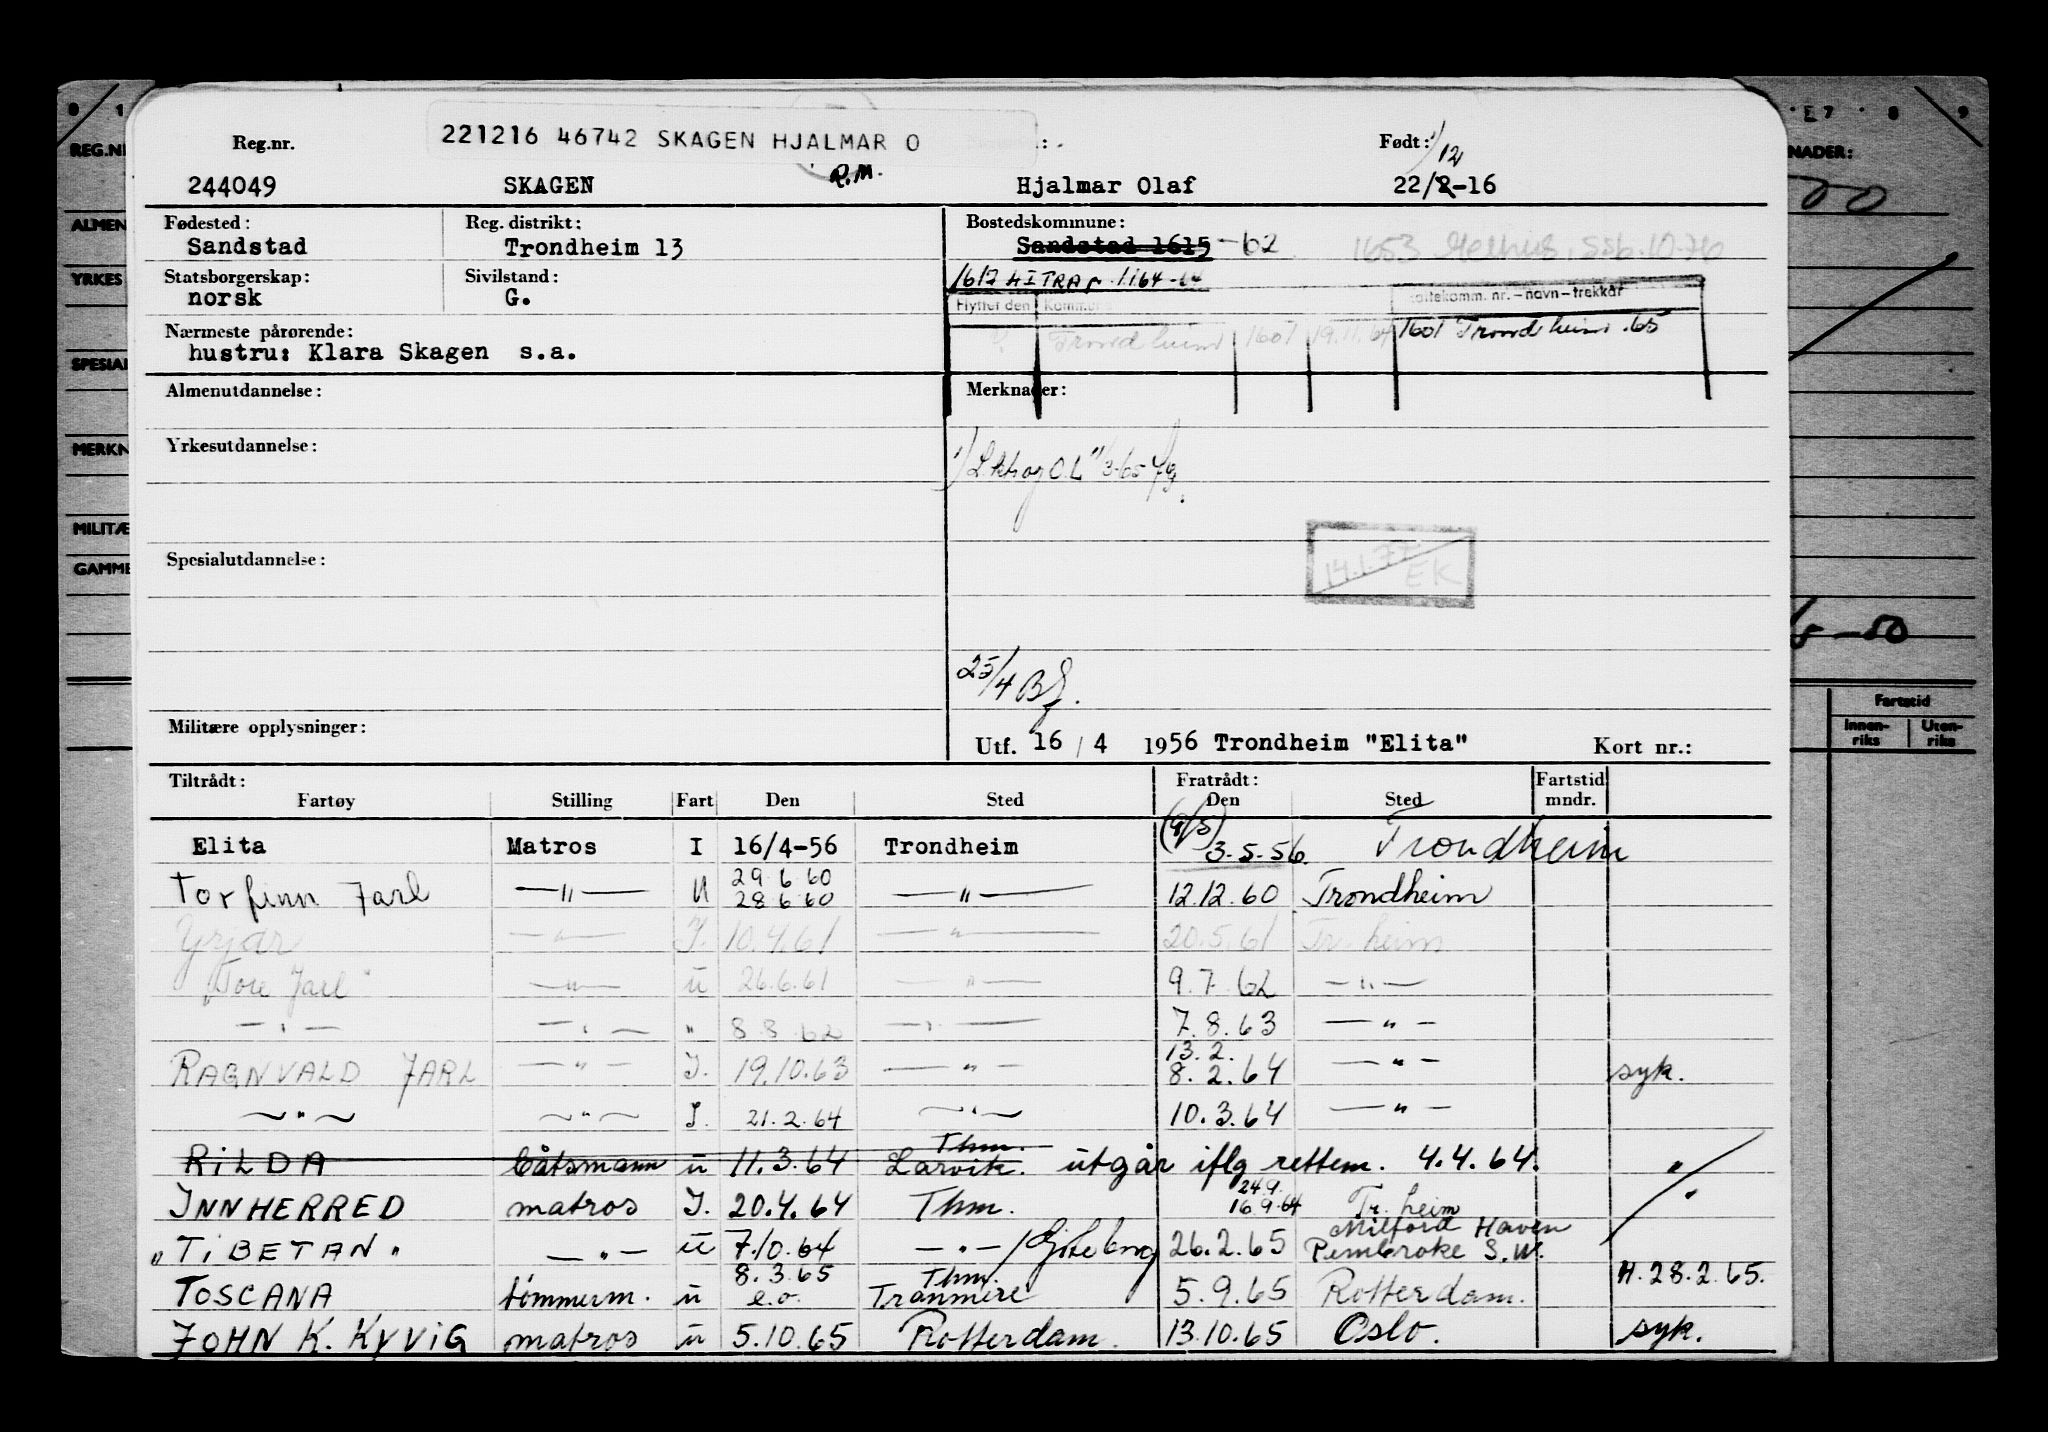 221216 46742 SKAGEN HJALMAR O
Reg.nr. Født: 1) 12
244049 SKAGEN R.M. Hjalmar Olaf 22/2-16
Fødested: Reg. distrikt: Bostedskommune:
Sandstad Trondheim 13 Sandstad 1615 -62 1653 Melhus, SSB. 10-76
Statsborgerskap: Sivilstand: 1617 HITRA 1.1.64-64
norsk G. Flyttet den Kommune komm. nr.-navn-trekkår
Nærmeste pårørende: Trondheim 1601 19.11.64 1601 Trondheim .65
hustru: Klara Skagen s.a.
Almenutdannelse: Merknader:
Yrkesutdannelse:
Spesialutdannelse: 14.1.77 EK
25/4
Militære opplysninger: Utf. 16/4 1956 Trondheim "Elita" Kort nr.:
Tiltrådt: Fratrådt: Fartstid
Fartøy Stilling Fart Den Sted Den Sted mndr.
Elita Matros I 16/4-56 Trondheim (4/5) 3.5.56. Trondheim
29 6 60
Torfinn Jarl —"— U 28 6 60 —"— 12.12.60 Trondheim
Yrjar —"— I. 10.4.61 —"— 20.5.61 Tr.heim
"Tore Jarl" —"— u 26.6.61 —"— 9.7.62 —"—
—"— —"— " 8 8 62 —"— 7.8.63 —"—
13.2.
RAGNVALD JARL —"— I. 19.10.63 —"— 8.2.64 —"— syk.
—"— —"— I. 21.2.64 —"— 10.3.64 —"—
Thm.
RILDA båtsmann u 11.3.64 Larvik. utgår iflg rettem. 4.4.64. "
24.9.
INNHERRED matros I. 20.4.64 Thm. 16.9.64 Tr.heim "
Milford Haven
"TIBETAN" —"— u 7.10.64 —"—/Gøteborg 26.2.65 Pembroke S.W.
8.3.65 Thm. H. 28.2.65.
TOSCANA tømmerm. u e.o. Tranmere 5.9.65 Rotterdam.
JOHN K. KYVIG matros u 5.10.65 Rotterdam. 13.10.65 Oslo. syk.
0 1
REG.N
ALMEN
YRKES
SPESIAL
MERKN
MILITÆ
GAMME
7 8 9
NADER:
-50
Fartstid
Innen-riks Uten-riks